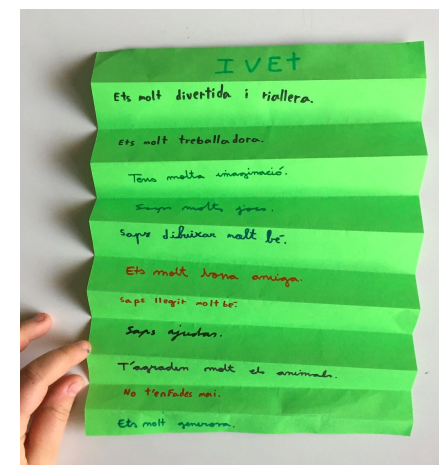 IVEt
Ets molt divertida i riallera.
Ets molt treballadora.
Tens molta imaginació.
Saps molts jocs.
Saps dibuixar molt bé.
Ets molt bona amiga.
Saps llegit molt bé.
Saps ajudar.
T'agraden molt els animals.
No t'enfades mai.
Ets molt generosa.